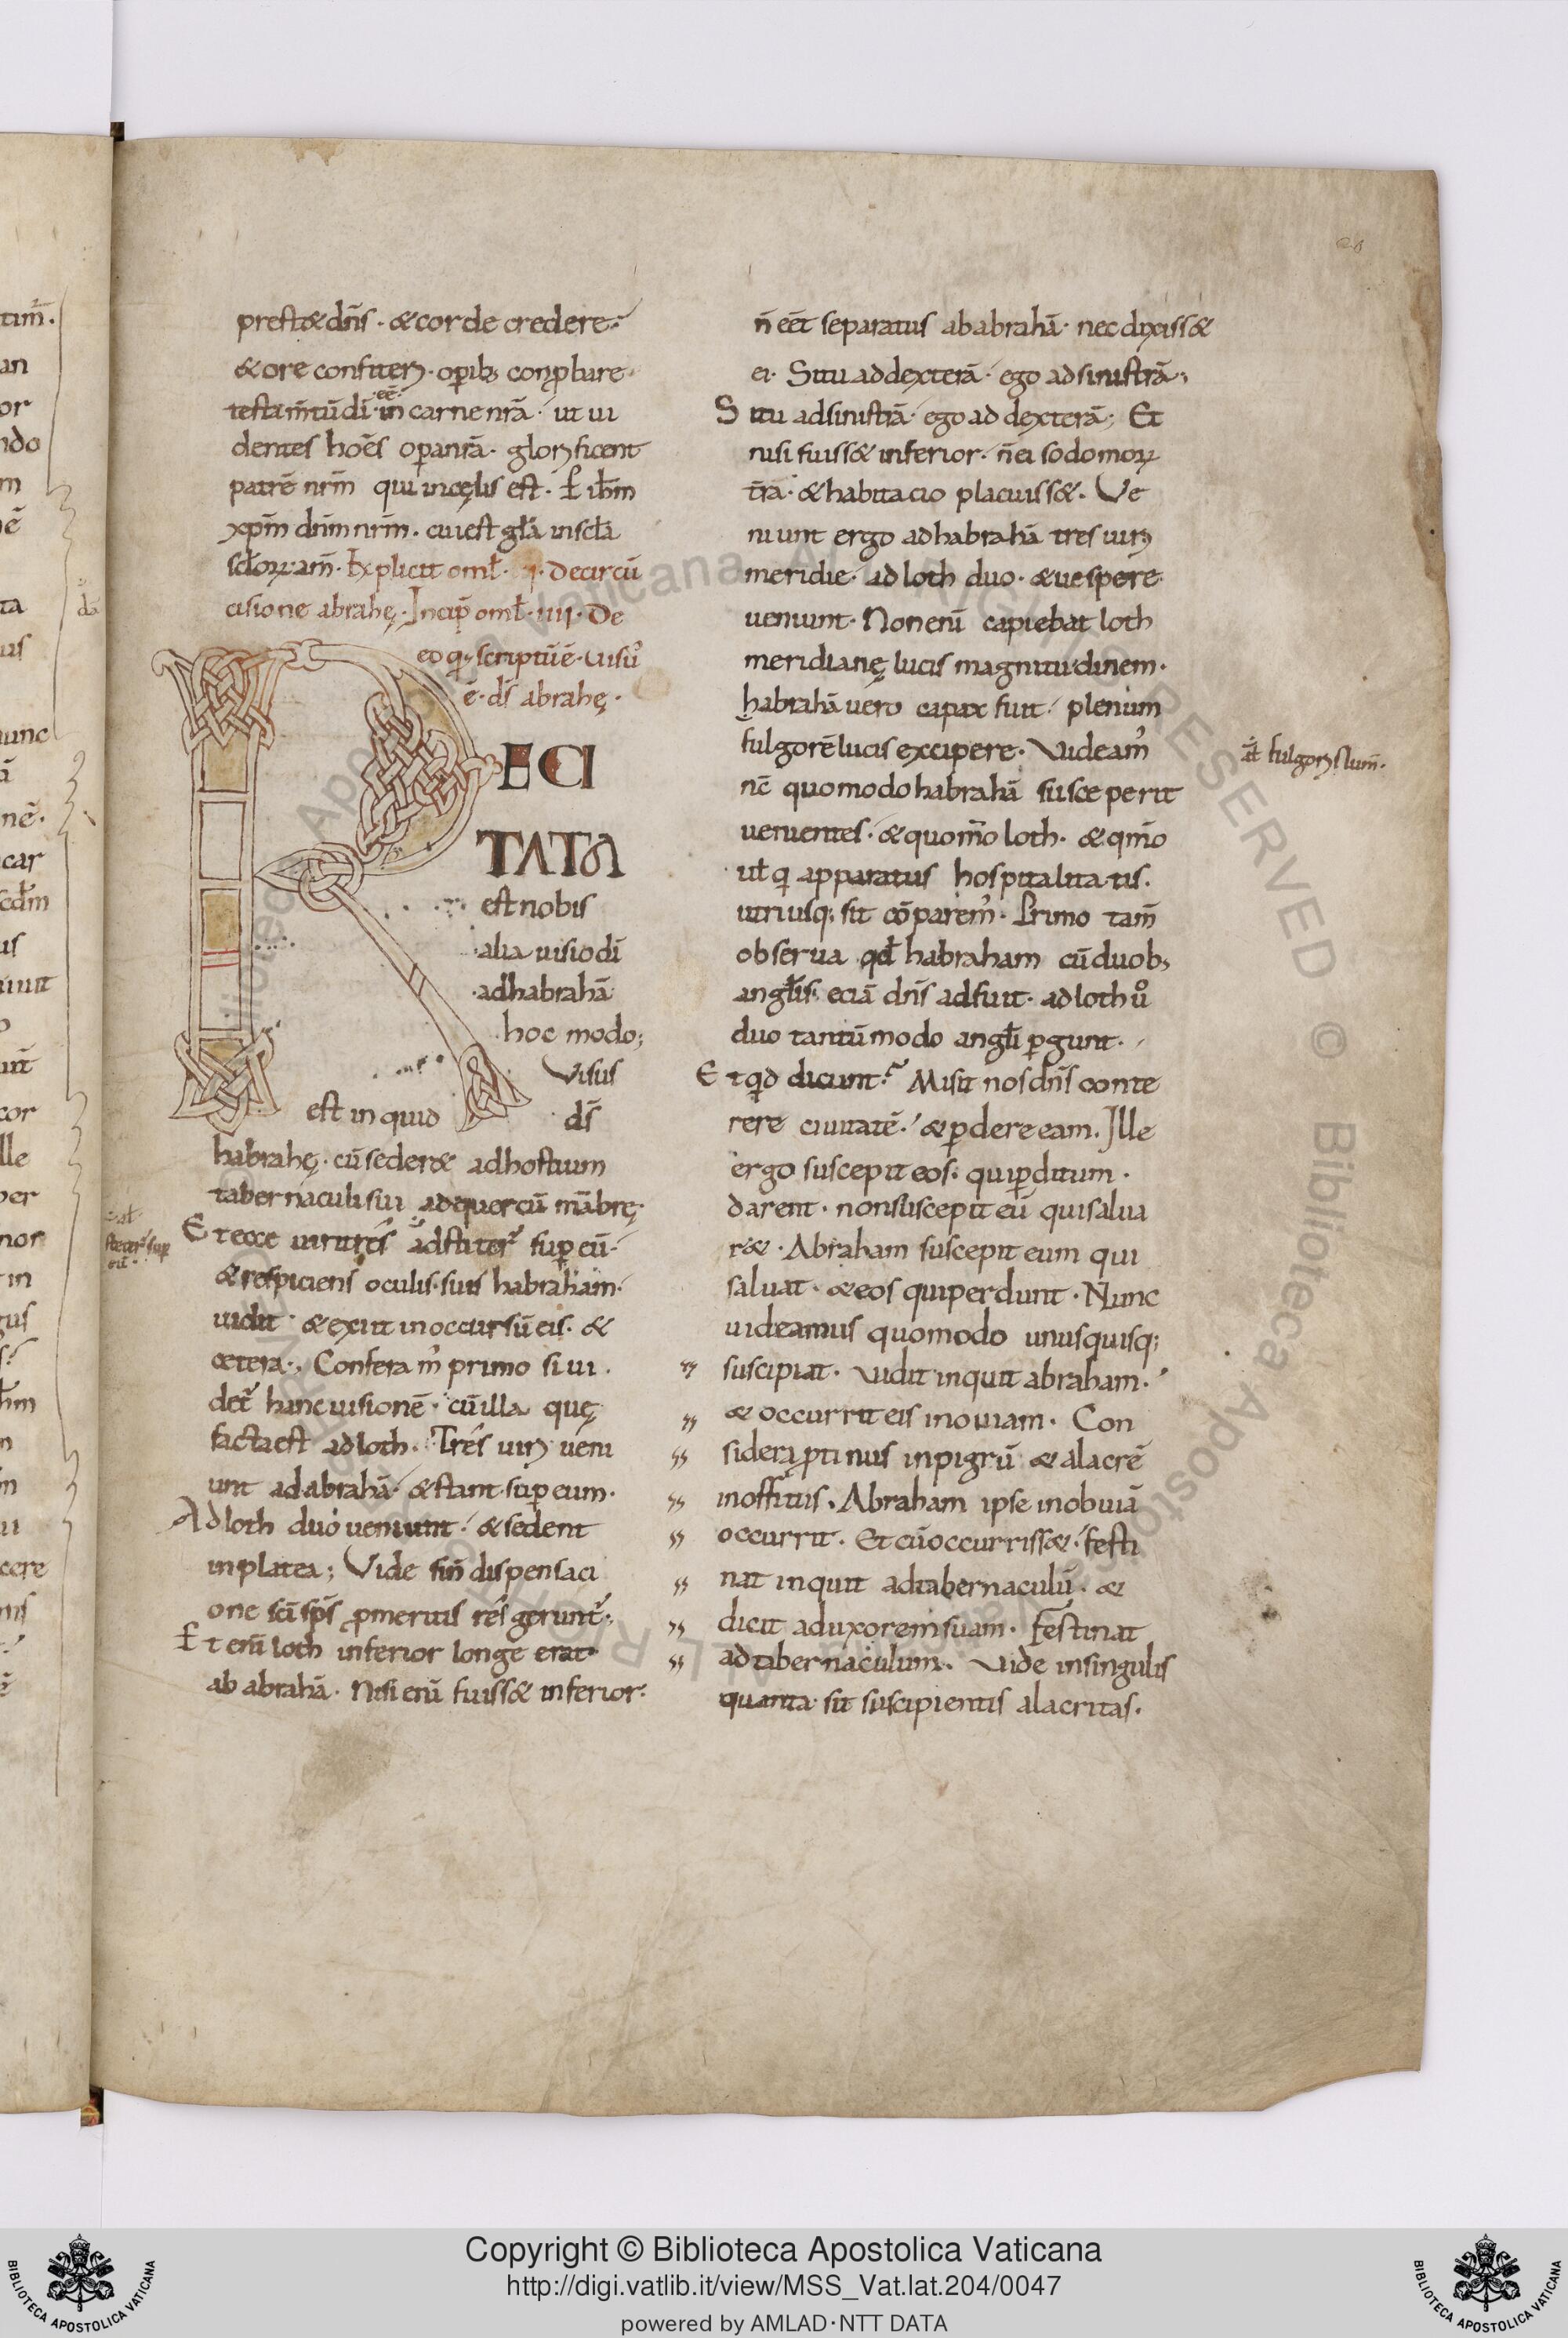 prestet dn̄s · & corde credere ·
& ore confiteri · opib; conp̱bare
testam̄tū dī · eē in carne nrā · ut ui
dentes hoēs opa nrā · glorificent
patrē nrm̄ qui incęlis est · P ihm̄
xpm̄ dnm̄ nrm̄ · cui est gla in scla
sclorꝝ · am̄ · Explicit oml · De circū
cisione abrahę · Incip̄ oml · IIII · De
eo q; scriptū ē · Uisu᾿
ē · ds̄ abrahę ·
RECI
TATA
est nobis
alia uisio dī
ad habrahā
hoc modo;
Visus
est inquid ds̄
habrahę · cū seder& ad hostium
tabernaculi sui ad quercū mābrę ·
Et ecce uiri tres adstiter᾿ sup eū ·
& respiciens oculis suis habraham ·
uidit · & exiit in occursū eis · &
cetera · Conferam᾿ primo si ui
det᾿ hanc uisionē · cū illa quę
facta est ad loth · Tres uiri ueni
unt ad abrahā · & stant sup eum ·
Ad loth duo ueniunt · & sedent
in platea; Vide si n̄ dispensaci
one scī sps̄ p̱ meritis res gerunt᾿ ·
Et enī loth inferior longe erat
ab abrahā · Nisi enī fuiss& inferior ·
n̄ eēt separatus ab abrahā · nec dixiss&
ei · Si tu ad dexterā · ego ad sinistrā;
Si tu ad sinistrā · ego ad dexterā; Et
nisi fuiss& inferior · n̄ ei sodomorꝝ
t̄ra · & habitacio placuiss& · Ve
niunt ergo ad habrahā tres uiri
meridie · ad loth duo · & uespere
ueniunt · Non enī capiebat loth
meridianę lucis magnitudinem ·
habrahā uero capax fuit · plenum
fulgorē lucis excipere · Videam᾿
nc̄ quomodo habrahā susceperit
uenientes · & quom̄o loth · & qm̄o
utq apparatus hospitalitatis ·
utriusq; sit cōparem᾿ · Primo tam̄
obserua qd habraham cū duob;
anglis · eciā dn̄s adfuit · ad loth uº
duo tantū modo angli pgunt ·
Et qid dicunt · Misit nos dn̄s conte
rere ciuitatē · & pdere eam · Ille
ergo suscepit eos · qui pditum ·
darent · non suscepit eū qui salua
r& · Abraham suscepit eum qui
saluat · & eos qui perdunt · Nunc
uideamus quomodo unusquisq;
suscipiat · Vidit inquit abraham ·
& occurrit eis inouiam · Con
sidera ptinus inpigrū & alacrē
in officiis · Abraham ipse in obuiā
occurrit · Et cū occurriss& · festi
nat inquit ad tabernaculū · &
dicit ad uxorem suam · Festinat
ad tabernaculum · Vide in singulis
quanta sit suscipientis alacritas ·
Copyright © Biblioteca Apostolica Vaticana
http://digi.vatlib.it/view/MSS_Vat.lat.204/0047
powered by AMLAD·NTT DATA
BIBLIOTECA APOSTOLICA VATICANA
BIBLIOTECA APOSTOLICA VATICANA